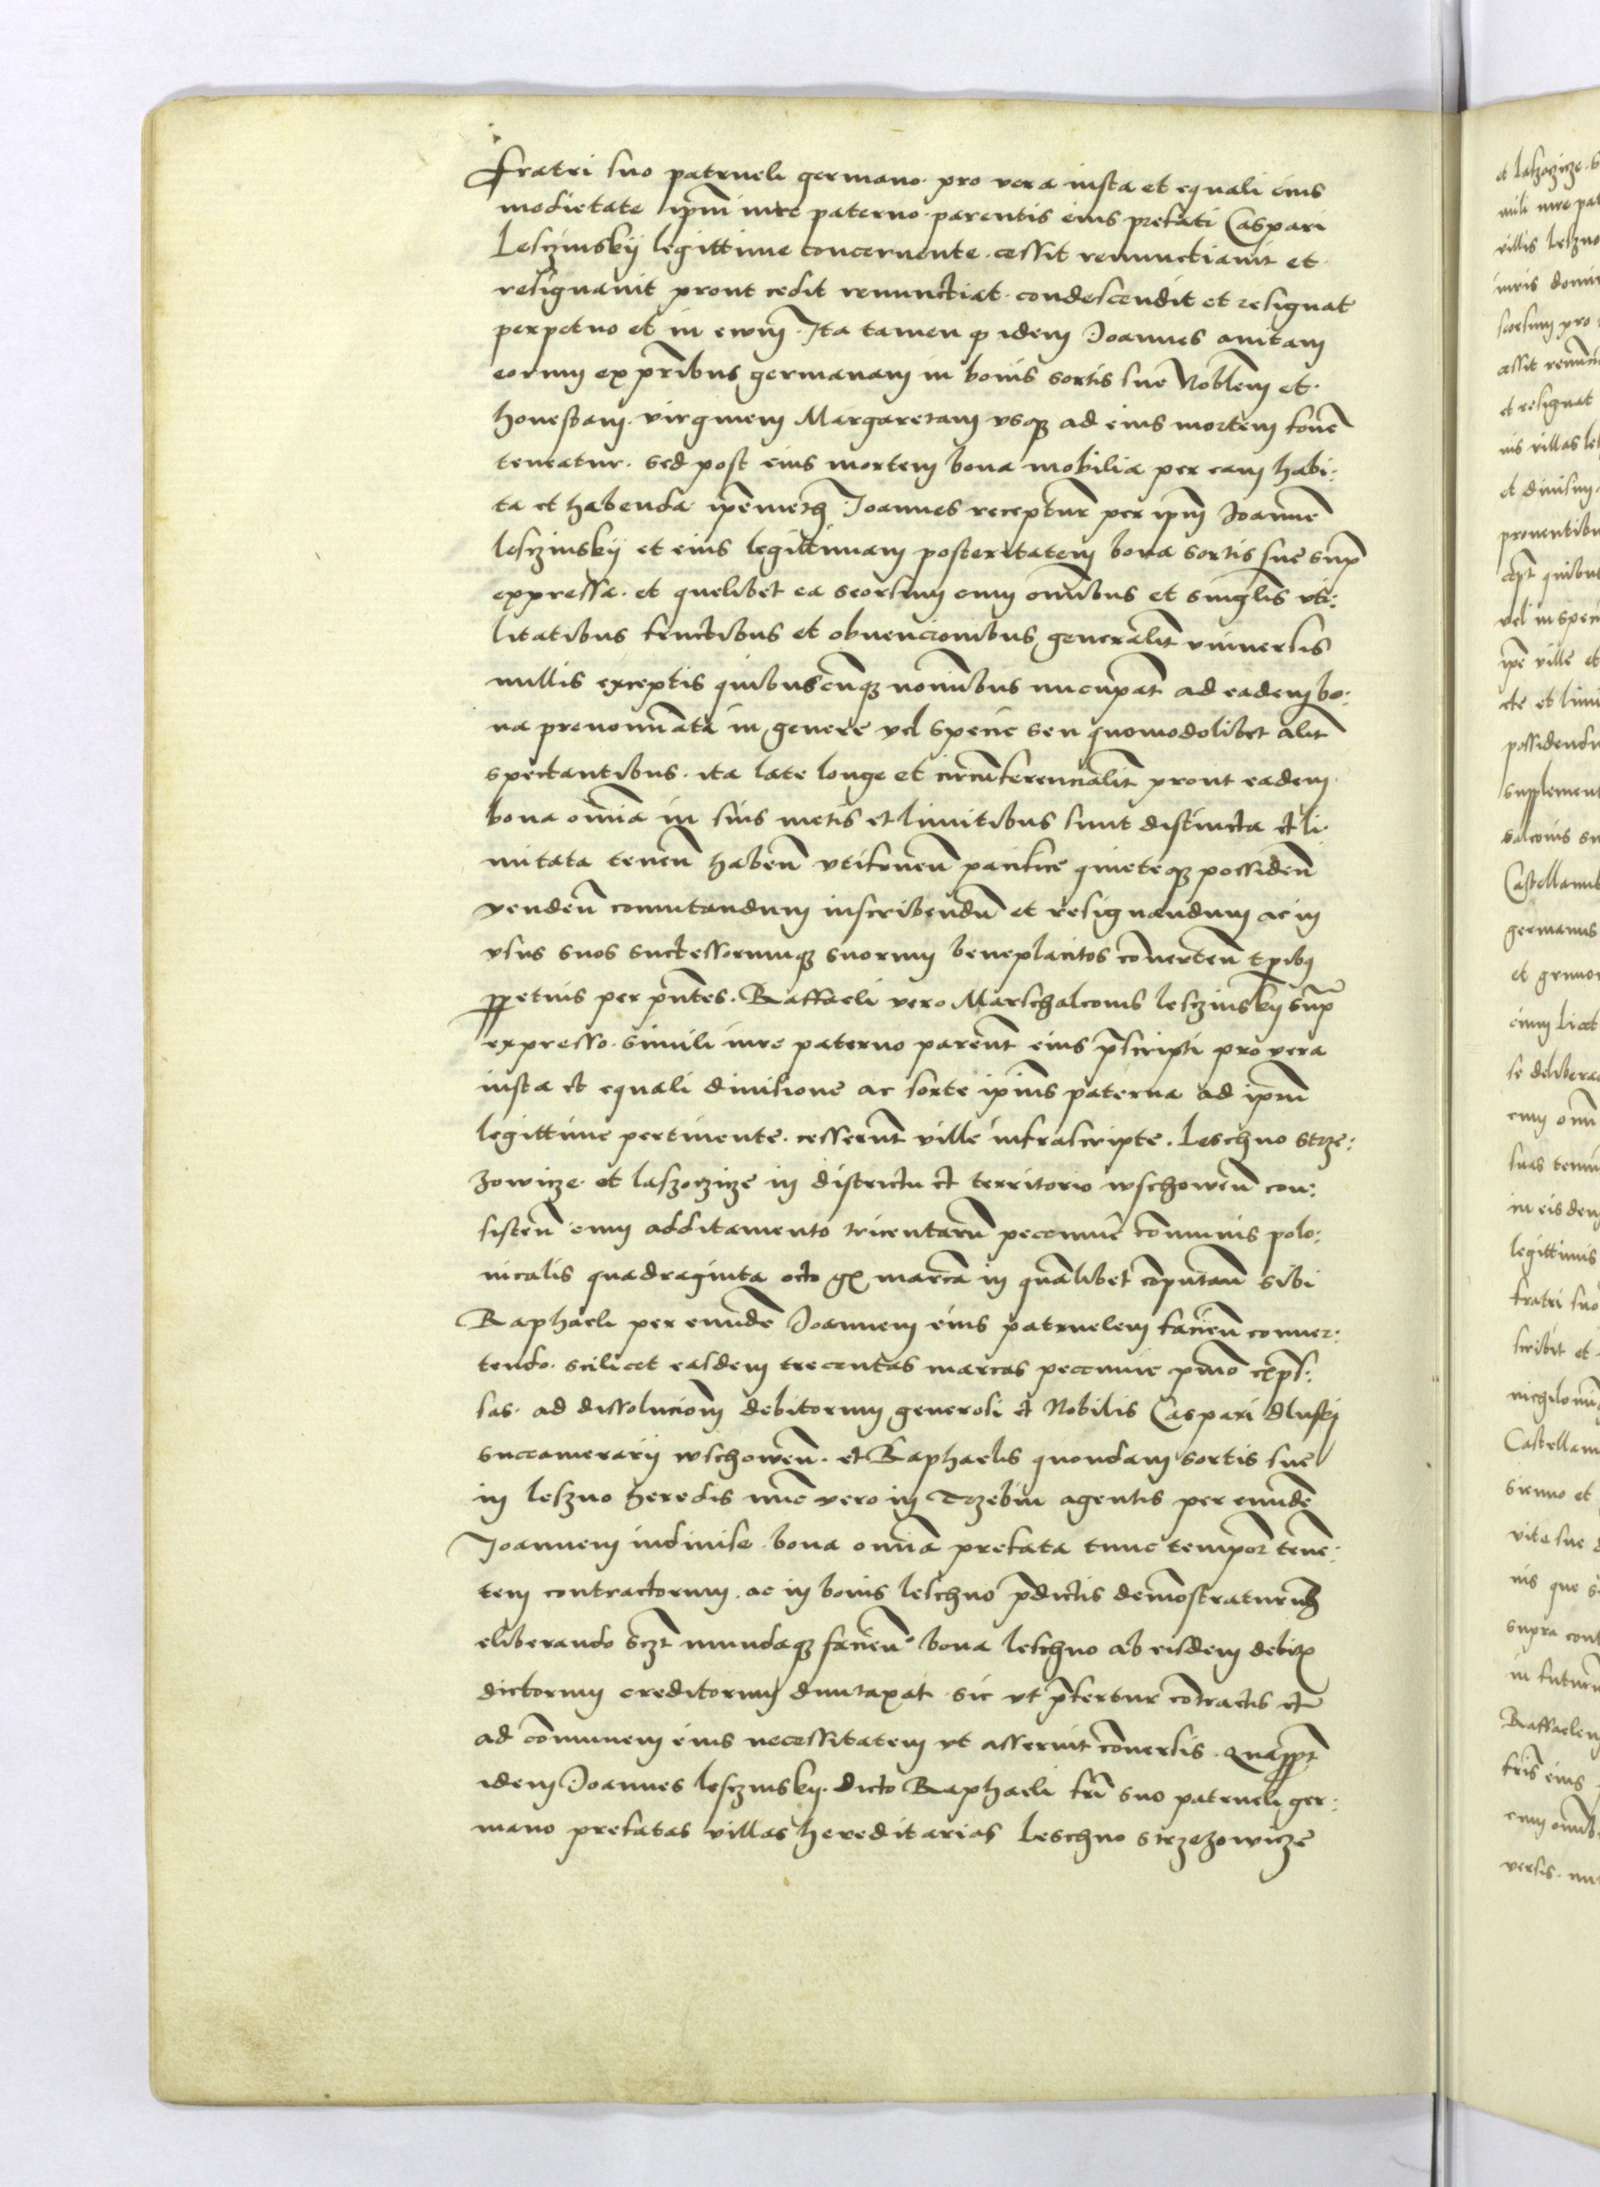 fratri suo patrueli germano. pro vera iusta et equali eius
medietate ip̄m iure paterno. parentis eius prefati Caspari
Lesczinskij legittime concernente. cessit renunctiavit et
resignavit prout cedit renunctiat. condescendit et resignat
perpetuo et in ewū. Ita tamen ꝙ idem Joannes amitam
eorum ex pr̄ibus germanam in bonis sortis sue Nobłem et
honestam. virginem Margaretam vsqȝ ad eius mortem foue᷑
teneatur. sed post eius mortem bona mobilia per eam habi:
ta et habenda ip̄emetȝ Joannes receptur᷑ per ip̄m Joanne᷑
lesczinskij et eius legittimam posteritatem bona sortis sue sup᷑
expressa. et quelibet ea seorsum cum om̄ibus et singłis vti:
litatibus fructibus et obuencionibus generalit᷑ vniuersis
nullis exceptis quibuscu̅qȝ nom̄ibus nucupat᷑ ad eadem bo:
na prenom̄ata in genere vel specie seu quomodolibet alit᷑
spectantibus. ita late longe et circu̅ferencialit᷑ prout eadem
bona om̄ia in suis metis et limitibus sunt distincta et li:
mitata tenen᷑ haben᷑ vtifruen᷑ pacifice quieteqȝ possiden᷑
venden᷑ comutandum inscribendu̅ et resignandum ac in
vsus suos successorumqȝ suorum beneplacitos co̅uerten᷑ t̄p̄ibȝ
ꝑpetuis per p̄ntes. Raffaeli vero Marschalconis lesczinskij sup᷑
expresso. simili iure paterno parent᷑ eius p̄scripti pro vera
iusta et equali diuisione ac sorte ip̄ius paterna ad ip̄m
legittime pertinente. cesserunt ville infrascripte. Leschno strze:
zowicze. et laszoczicze in districtu et territorio wschowen᷑ con:
sisten᷑ cum additamento tricentaru̅ peccunie co̅munis polo:
nicalis quadraginta octo gȝ marca̅ in qua̅libet co̅putan᷑ sibi
Raphaeli per eunde᷑ Joannem eius patruelem facien᷑ conuer:
tendo. scilicet easdem trecentas marcas peccunie p̄mo exp̄s:
sas. ad dissolucion̄m debitorum generosi et Nobilis Caspari dluski
succamerarij wschowen᷑. et Raphaelis quondam sortis sue
in leszno heredis nu̅c vero in Trzebin agentis per eunde᷑
Joannem indiuise. bona om̄ia prefata tunc tempor᷑ tene᷑:
tem contractorum. ac in bonis leschno p̄dictis demo̅straturu̅
eliberando sczt mundaqȝ facien᷑ bona leschno ab eisdem debit᷑
dictorum creditorum duntaxat. sic vt p̄fertur co̅tractis et
ad co̅munem eius necessitatem vt asseruit co̅uersis. Quap̄pt᷑
idem Joannes lesczinskij. dicto Raphaeli fr̄i suo patrueli ger:
mano prefatas villas hereditarias Leschno strzezowicze